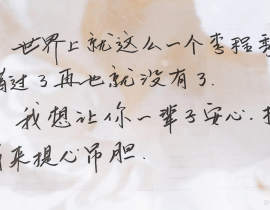 世界上就这么一个李程秀
错过了再也就没有了.
我想让你一辈子安心.
来提心吊胆.